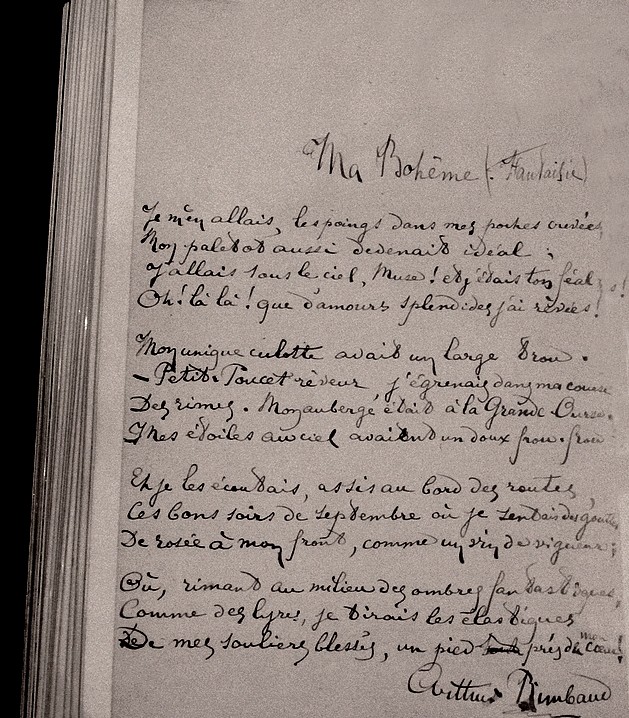 Ma Bohême (. Fantaisie)
Je m'en allais, les poings dans mes poches crevées
Mon paletot aussi devenait idéal ;
J'allais sous le ciel, Muse ! et j'étais ton féal ;
Oh ! là là ! que d'amours splendides j'ai rêvées !
Mon unique culotte avait un large trou .
– Petit-Poucet rêveur, j'égrenais dans ma course
Des rimes. Mon auberge était à la Grande-Ourse.
Mes étoiles au ciel avaient un doux frou-frou
Et je les écoutais, assis au bord des routes,
Ces bons soirs de septembre où je sentais des gouttes
De rosée à mon front, comme un vin de vigueur ;
Où, rimant au milieu des ombres fantastiques,
Comme des lyres, je tirais les élastiques
De mes souliers blessés, un pied près de mon cœur !
Arthur Rimbaud